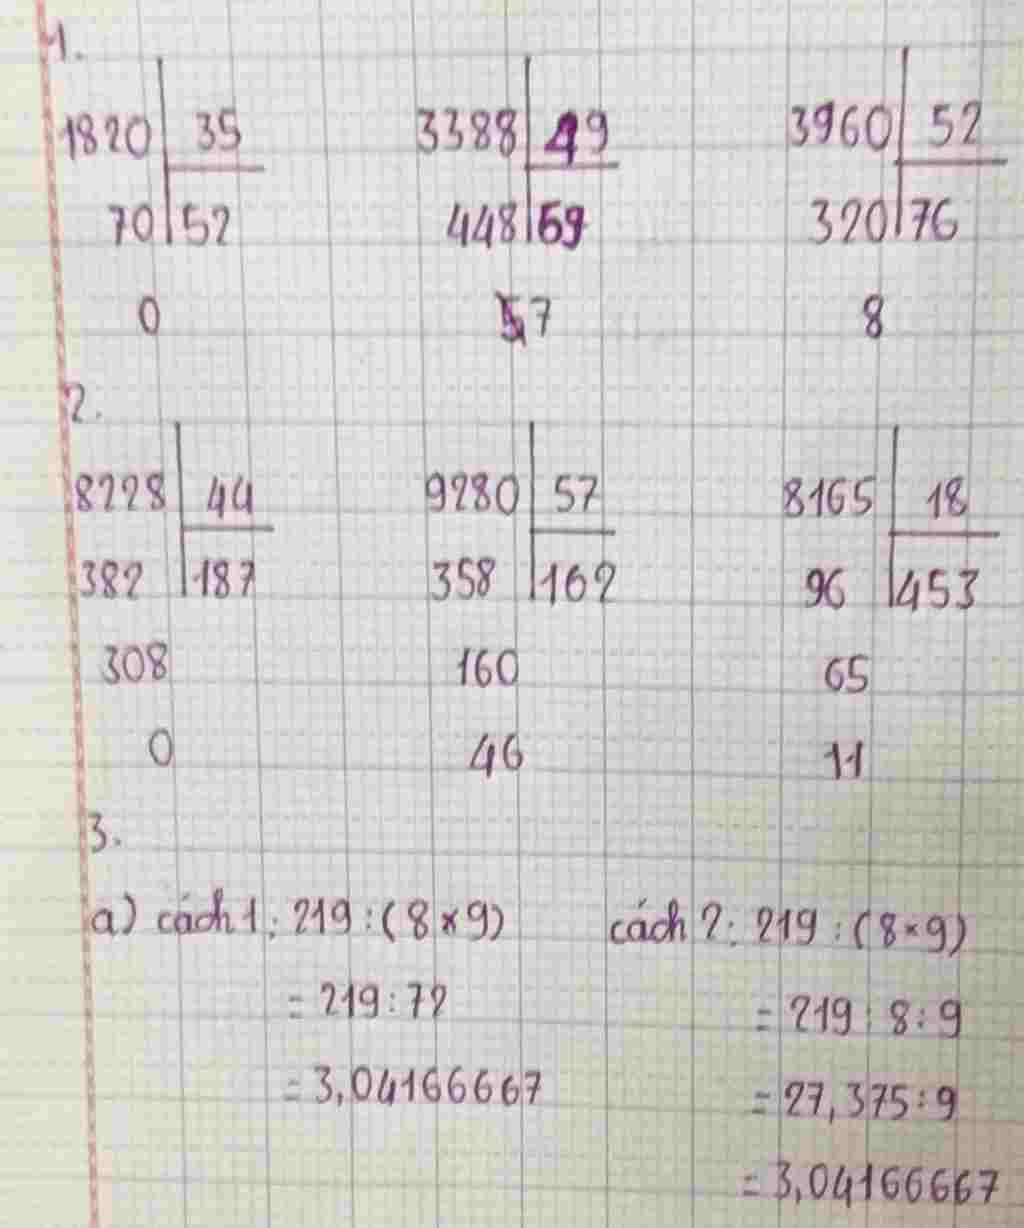 1.
1820 35 3388 49 3960 52
70 52 448 69 320 76
0 7 8
2.
8228 44 9280 57 8165 18
382 187 358 162 96 453
308 160 65
0 46 11
3.
a) cách 1: 219 : (8 × 9) cách 2: 219 : (8 × 9)
= 219 : 72 = 219 : 8 : 9
= 3,04166667 = 27,375 : 9
= 3,04166667